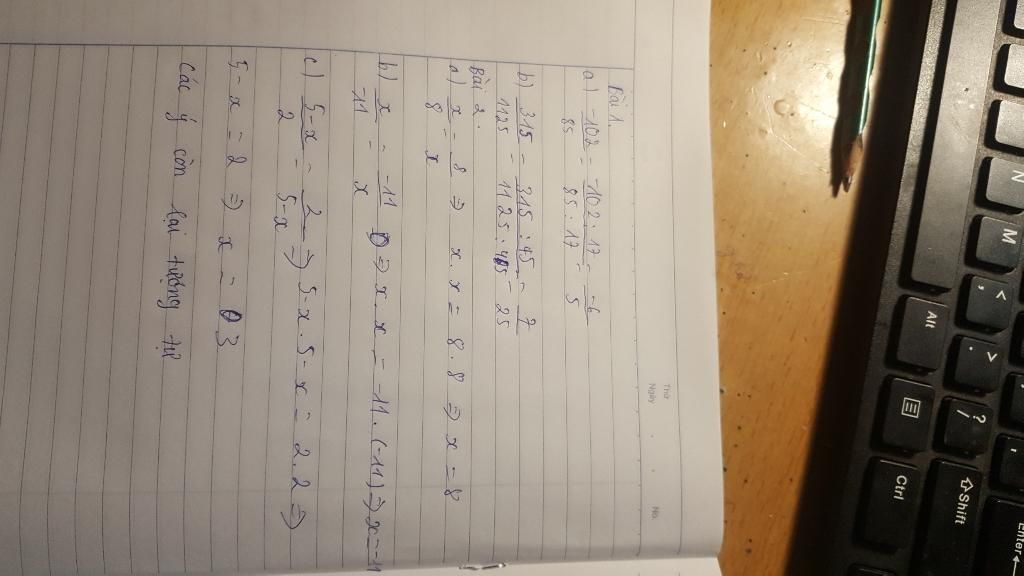 Thứ
Ngày
No.
Bài 1.
a) -102/85 = -102:17/85:17 = -6/5
b) 315/1125 = 315:45/1125:45 = 7/25
Bài 2.
a) x/8 = 8/x => x.x = 8.8 => x = 8
b) x/-11 = -11/x => x.x = -11.(-11) => x = -11
c) 5-x/2 = 2/5-x => 5-x.5-x = 2.2 =>
5-x = 2 => x = 3
Các ý còn lại tương tự
N
M
< ,
> .
? /
Alt
Ctrl
⇧Shift
Enter